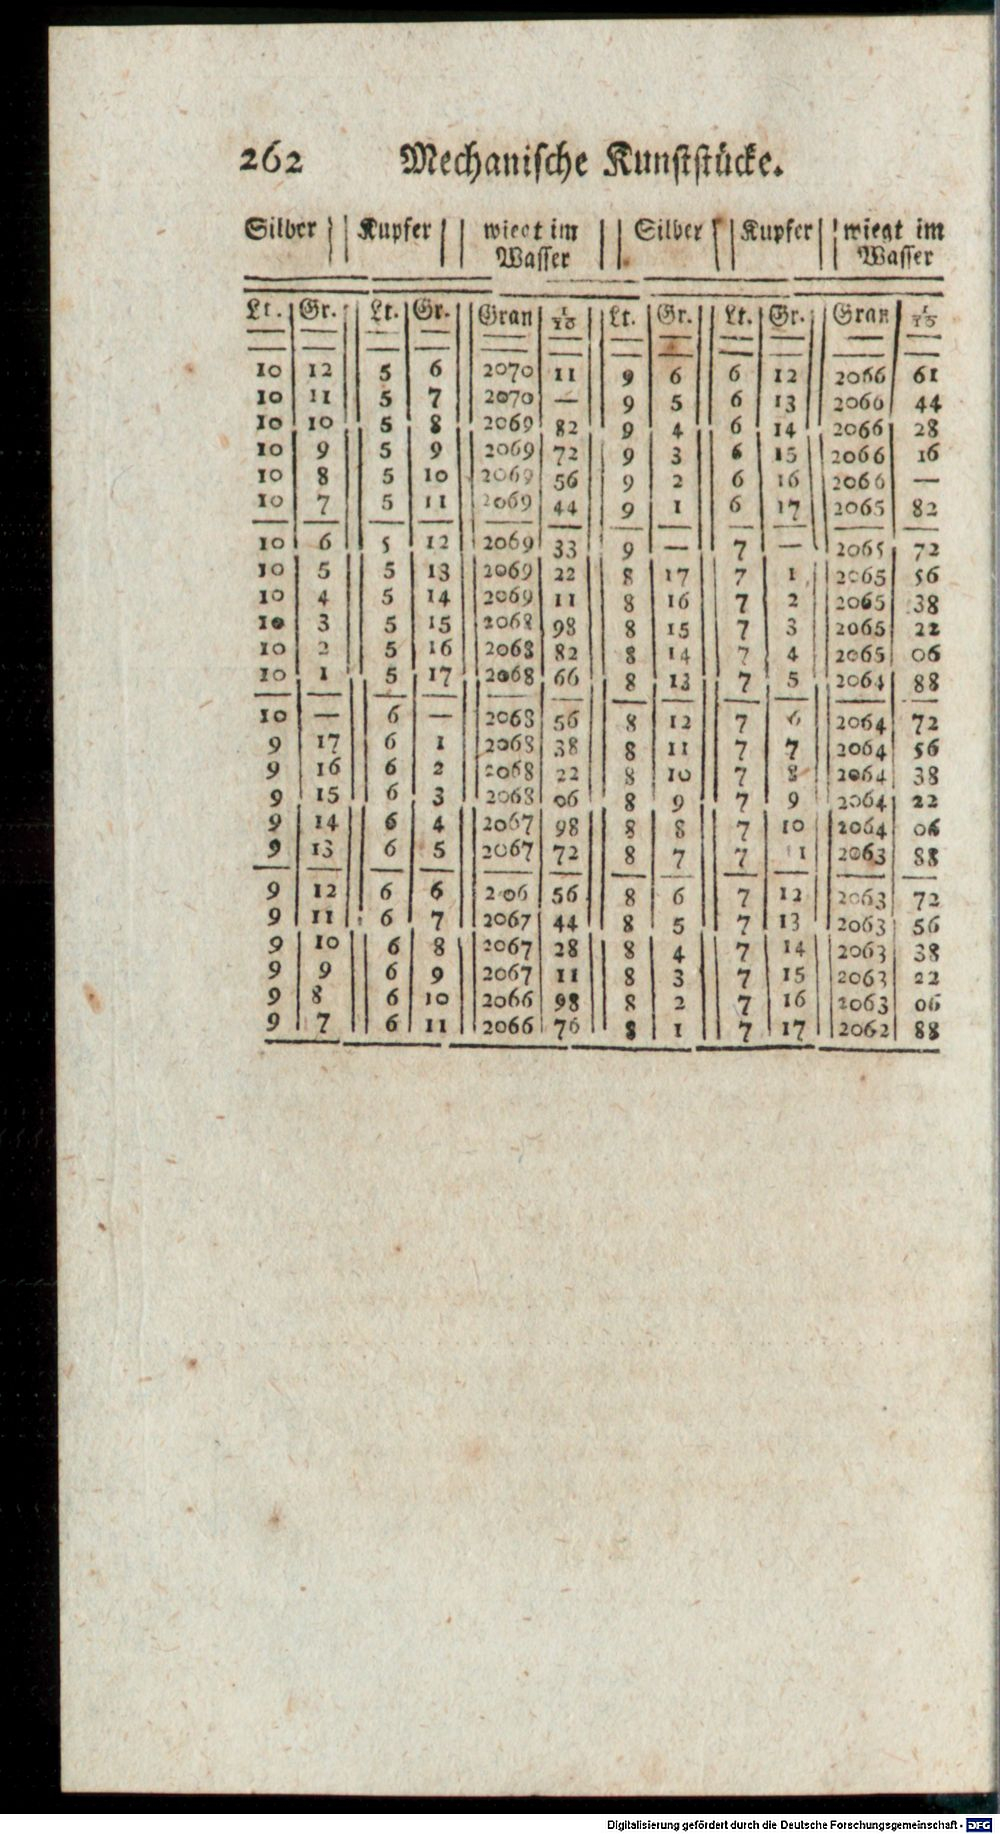 262 Mechanische Kunststücke.
Silber Kupfer wiegt im Silber Kupfer wiegt im
Wasser Wasser
Lt. Gr. Lt. Gr. Gran 1/10 Lt. Gr. Lt. Gr. Gran 1/10
10 12 5 6 2070 11 9 6 6 12 2066 61
10 11 5 7 2070 — 9 5 6 13 2066 44
10 10 5 8 2069 82 9 4 6 14 2066 28
10 9 5 9 2069 72 9 3 6 15 2066 16
10 8 5 10 2069 56 9 2 6 16 2066 —
10 7 5 11 2069 44 9 1 6 17 2065 82
10 6 5 12 2069 33 9 — 7 — 2065 72
10 5 5 13 2069 22 8 17 7 1 2065 56
10 4 5 14 2069 11 8 16 7 2 2065 38
10 3 5 15 2068 98 8 15 7 3 2065 22
10 2 5 16 2068 82 8 14 7 4 2065 06
10 1 5 17 2068 66 8 13 7 5 2064 88
10 — 6 — 2068 56 8 12 7 6 2064 72
9 17 6 1 2068 38 8 11 7 7 2064 56
9 16 6 2 2068 22 8 10 7 8 2064 38
9 15 6 3 2068 06 8 9 7 9 2064 22
9 14 6 4 2067 98 8 8 7 10 2064 06
9 13 6 5 2067 72 8 7 7 11 2063 88
9 12 6 6 206 56 8 6 7 12 2063 72
9 11 6 7 2067 44 8 5 7 13 2063 56
9 10 6 8 2067 28 8 4 7 14 2063 38
9 9 6 9 2067 11 8 3 7 15 2063 22
9 8 6 10 2066 98 8 2 7 16 2063 06
9 7 6 11 2066 76 8 1 7 17 2062 88
Digitalisierung gefördert durch die Deutsche Forschungsgemeinschaft - DFG